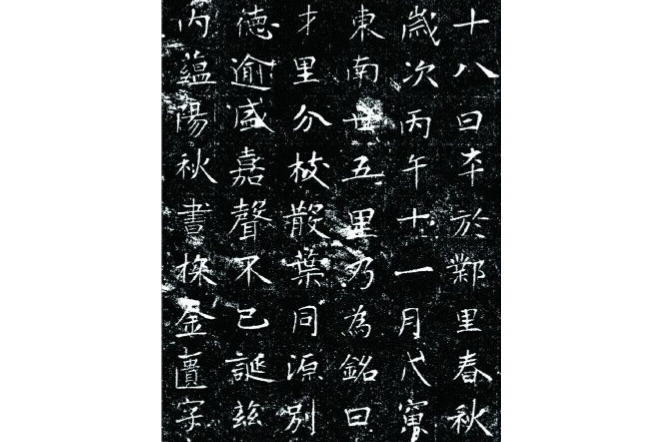 十八日卒於里春秋
歲次丙午十一月八
東南五里乃為銘曰
里分枝散葉同源別
德逾盛嘉聲不已誕茲
內蘊陽秋書探金匱字